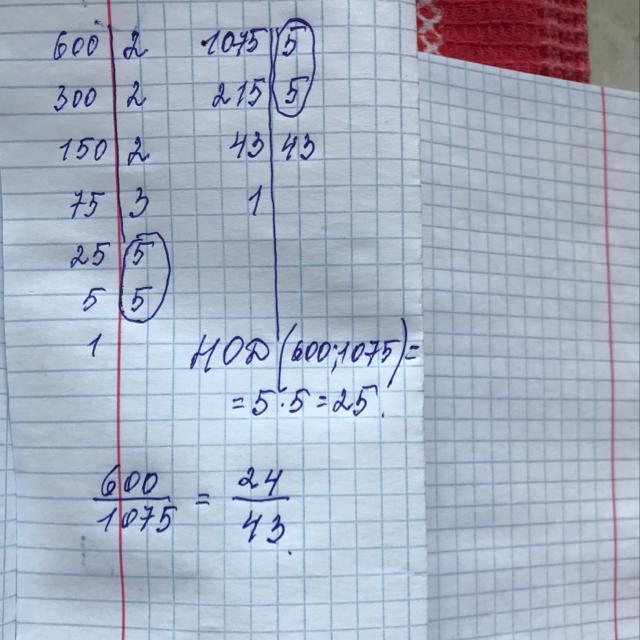 600 | 2 1075 | 5
300 | 2 215 | 5
150 | 2 43 | 43
75 | 3 1 |
25 | 5
5 | 5
1
НОД (600;1075) =
= 5 · 5 = 25.
600/1075 = 24/43.